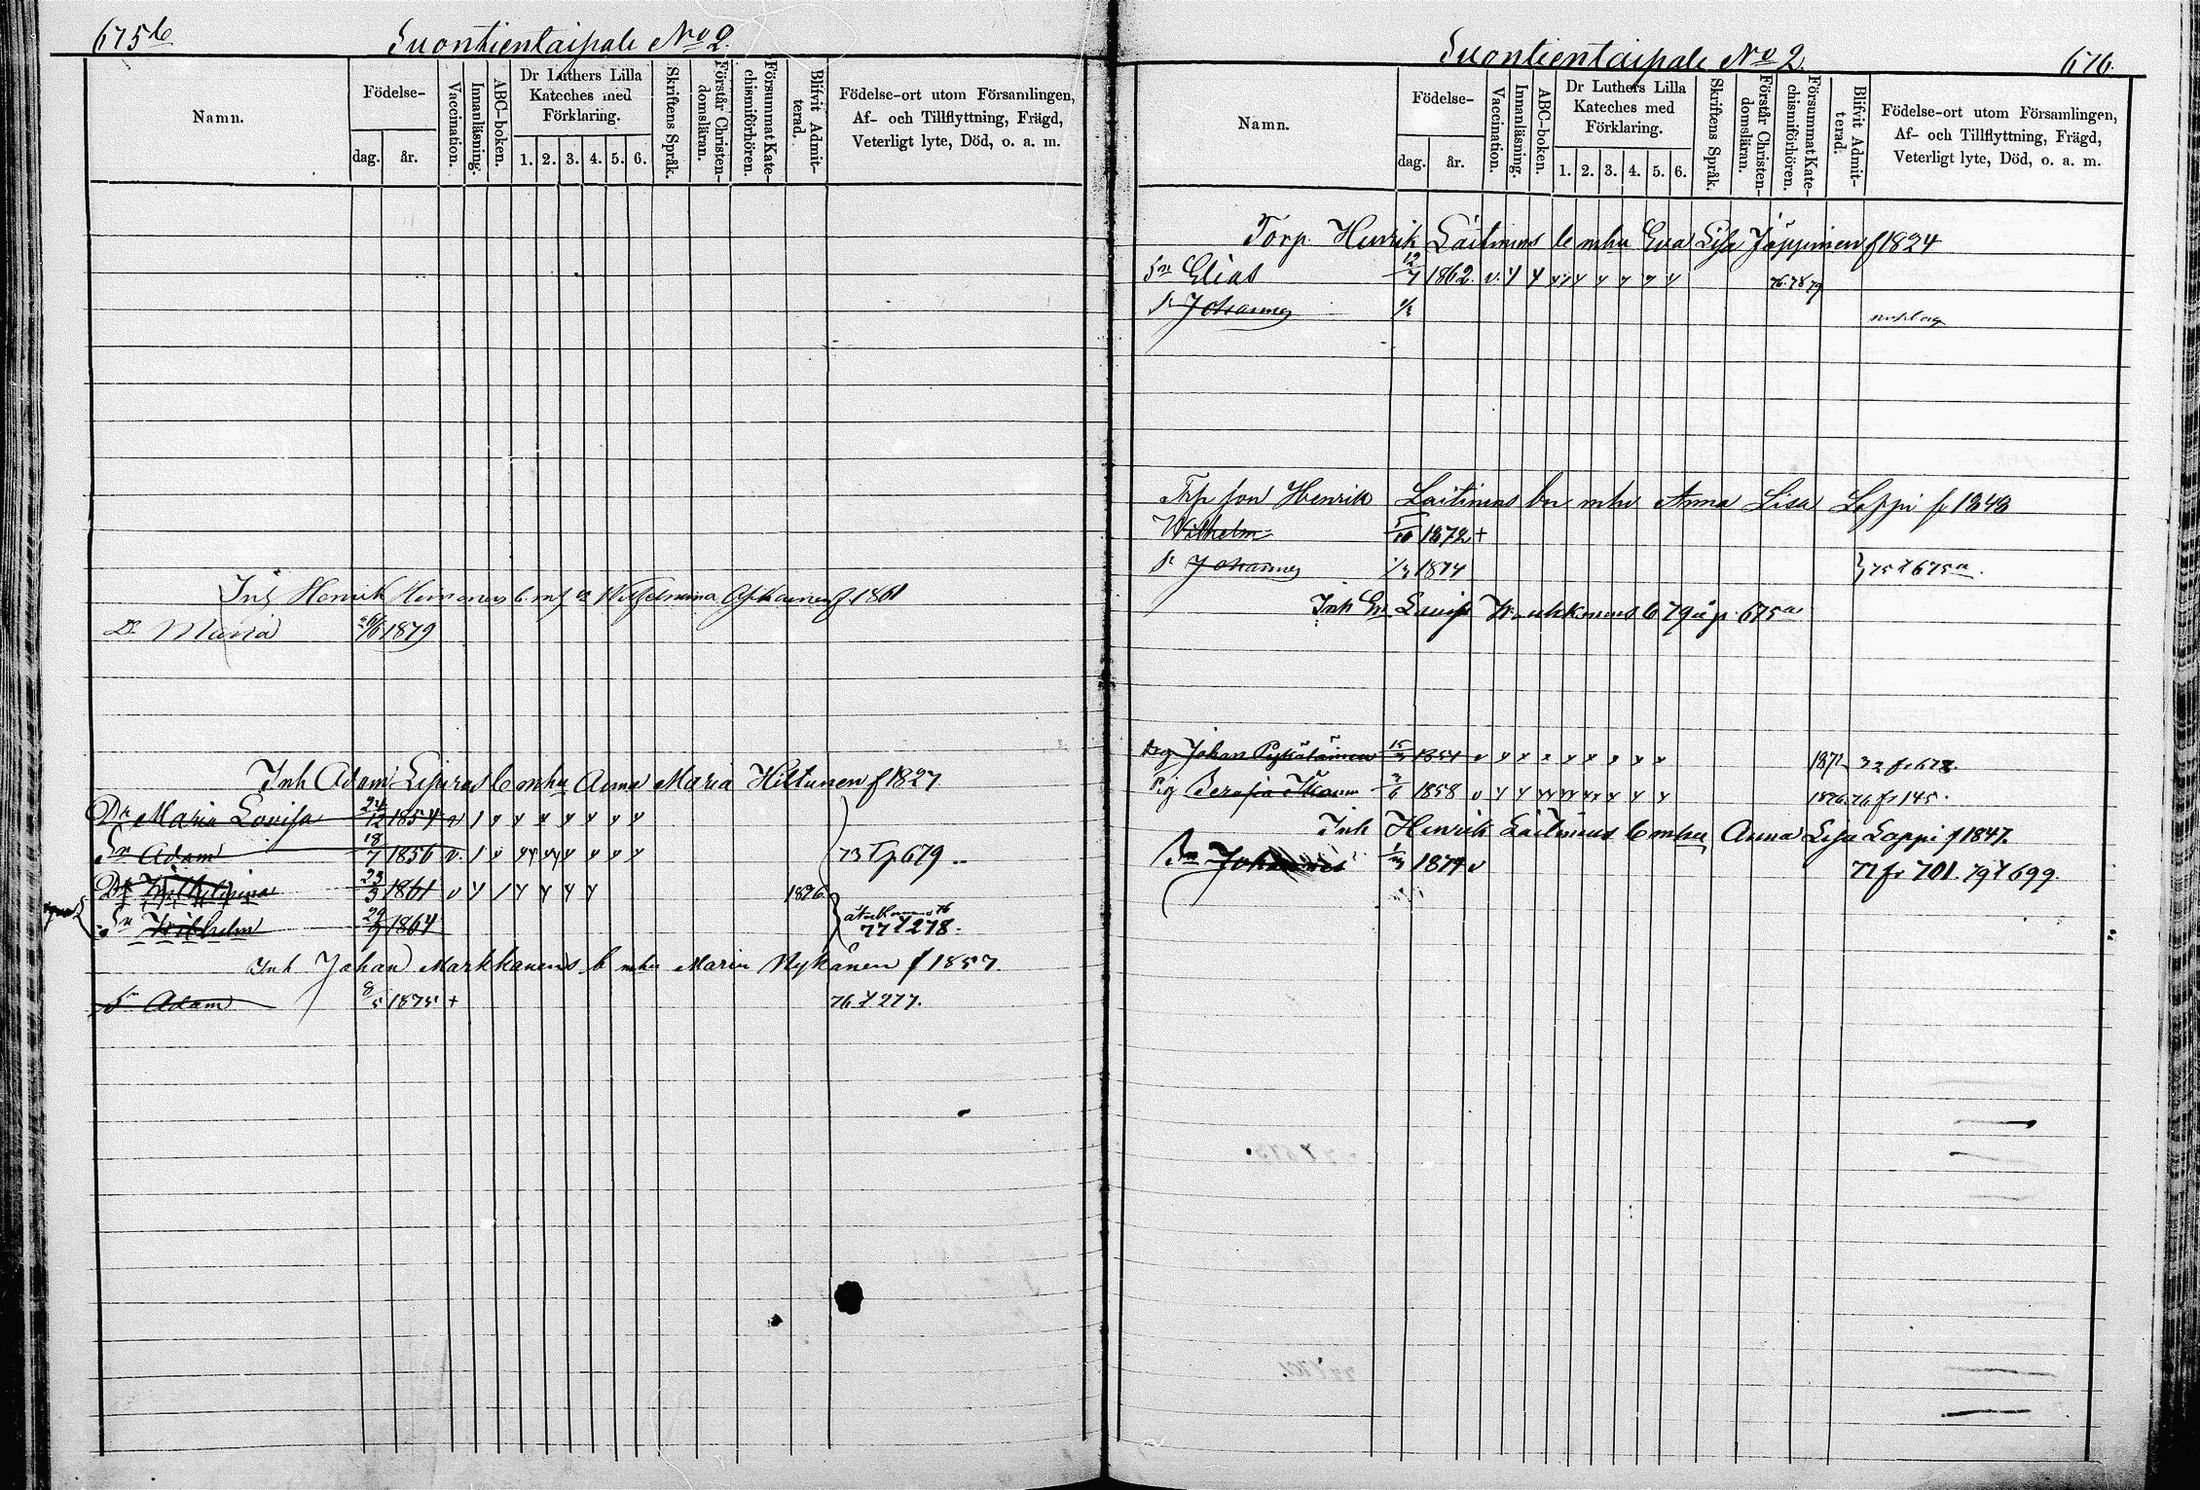 675 b
Suontientaipale No 2.
Namn.
Födelse-
dag. år.
Vaccination.
Innanläsning.
ABC-boken.
Dr Luthers Lilla
Kateches med
Förklaring.
1. 2. 3. 4. 5. 6.
Skriftens Språk.
Förstår Christen-
domsläran.
Försummat Kate-
chismiförhören.
Blifvit Admit-
terad.
Födelse-ort utom Församlingen,
Af- och Tillflyttning, Frägd,
Veterligt lyte, Död, o. a. m.
Inh Henrik b. Wilhelmina f 1861
Dr Maria 1879
Inh Adam b mhu Anna Maria Hiltunen f 1827.
Dr Maria Lovisa 24/12 1854
Sn Adam 18/7 1856 v. 73 Tp 679
Dr Wilhelmina 23/3 1861 v 1876
Sn Wilhelm 29/9 1864 77 t 278.
Inh Johan Markkanens b mhu Maria Nykänen f 1857.
Sn Adam 8/5 1875 + 76 t 277.
Suontientaipale No 2.
676.
Namn.
Födelse-
dag. år.
Vaccination.
Innanläsning.
ABC-boken.
Dr Luthers Lilla
Kateches med
Förklaring.
1. 2. 3. 4. 5. 6.
Skriftens Språk.
Förstår Christen-
domsläran.
Försummat Kate-
chismiförhören.
Blifvit Admit-
terad.
Födelse-ort utom Församlingen,
Af- och Tillflyttning, Frägd,
Veterligt lyte, Död, o. a. m.
Torp. Henrik Laitinens b mhu Eva Lisa Jäppinen f 1824
Sn Elias 12/7 1862. v. 76. 78 79
Sr Johannes
Trp son Henrik Laitinens bn mhu Anna Lisa Loppi f 1848
Wilhelm 5/10 1872 +
Sr Johannes 1/3 1874 75 t 675 a.
Inh b 79 å p. 675 a
Drg Johan 15/3 1854 v 1872 72 fr 678
Pig 1858 v 1876 76 fr 145.
Inh Henrik Laitinens b mhu Anna Lisa Loppi f 1847.
Sn Johannes 1/3 1874 v 77 fr 701. 79 t 699.